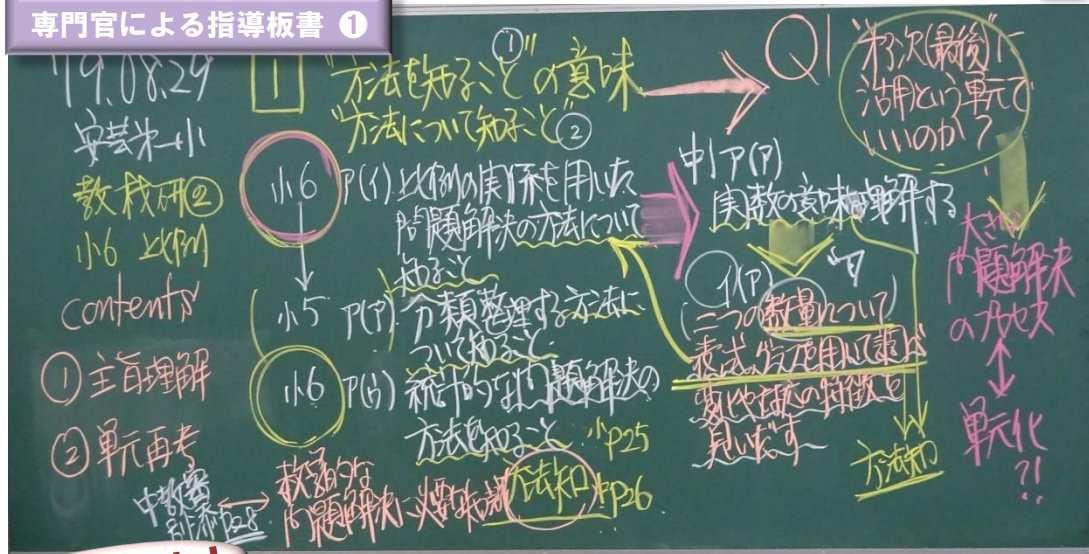 専門官による指導板書 ❶
'19.08.29
安芸第一小
教材研②
小6 比例
contents
① 主旨理解
② 単元再考
1 "方法を知ること"の意味 ①
"方法について知ること" ②
小6 ア(イ) 比例の関係を用いた
問題解決の方法について
知ること
小5 ア(ア) 分類整理する方法に
ついて知ること
小6 ア(ウ) 統計的な問題解決の
方法を知ること 小P25
中教審
別添 P28
数学的な
問題解決に必要な知識
方法知 P26
Q1 "第3次(最後)に
活用という単元で
いいのか?
中1 ア(ア)
関数の意味を理解する
イ(ア)
二つの数量について
表、式、グラフを用いて
変化や対応の特徴を
見いだす
方法知
大きな
問題解決
のプロセス
単元化
?!